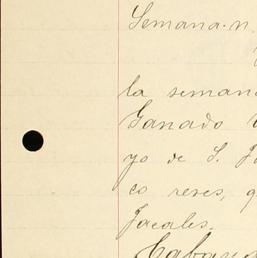 Semana. n.
la seman
Ganado
yo de S. J
co reses, q
Jacales.